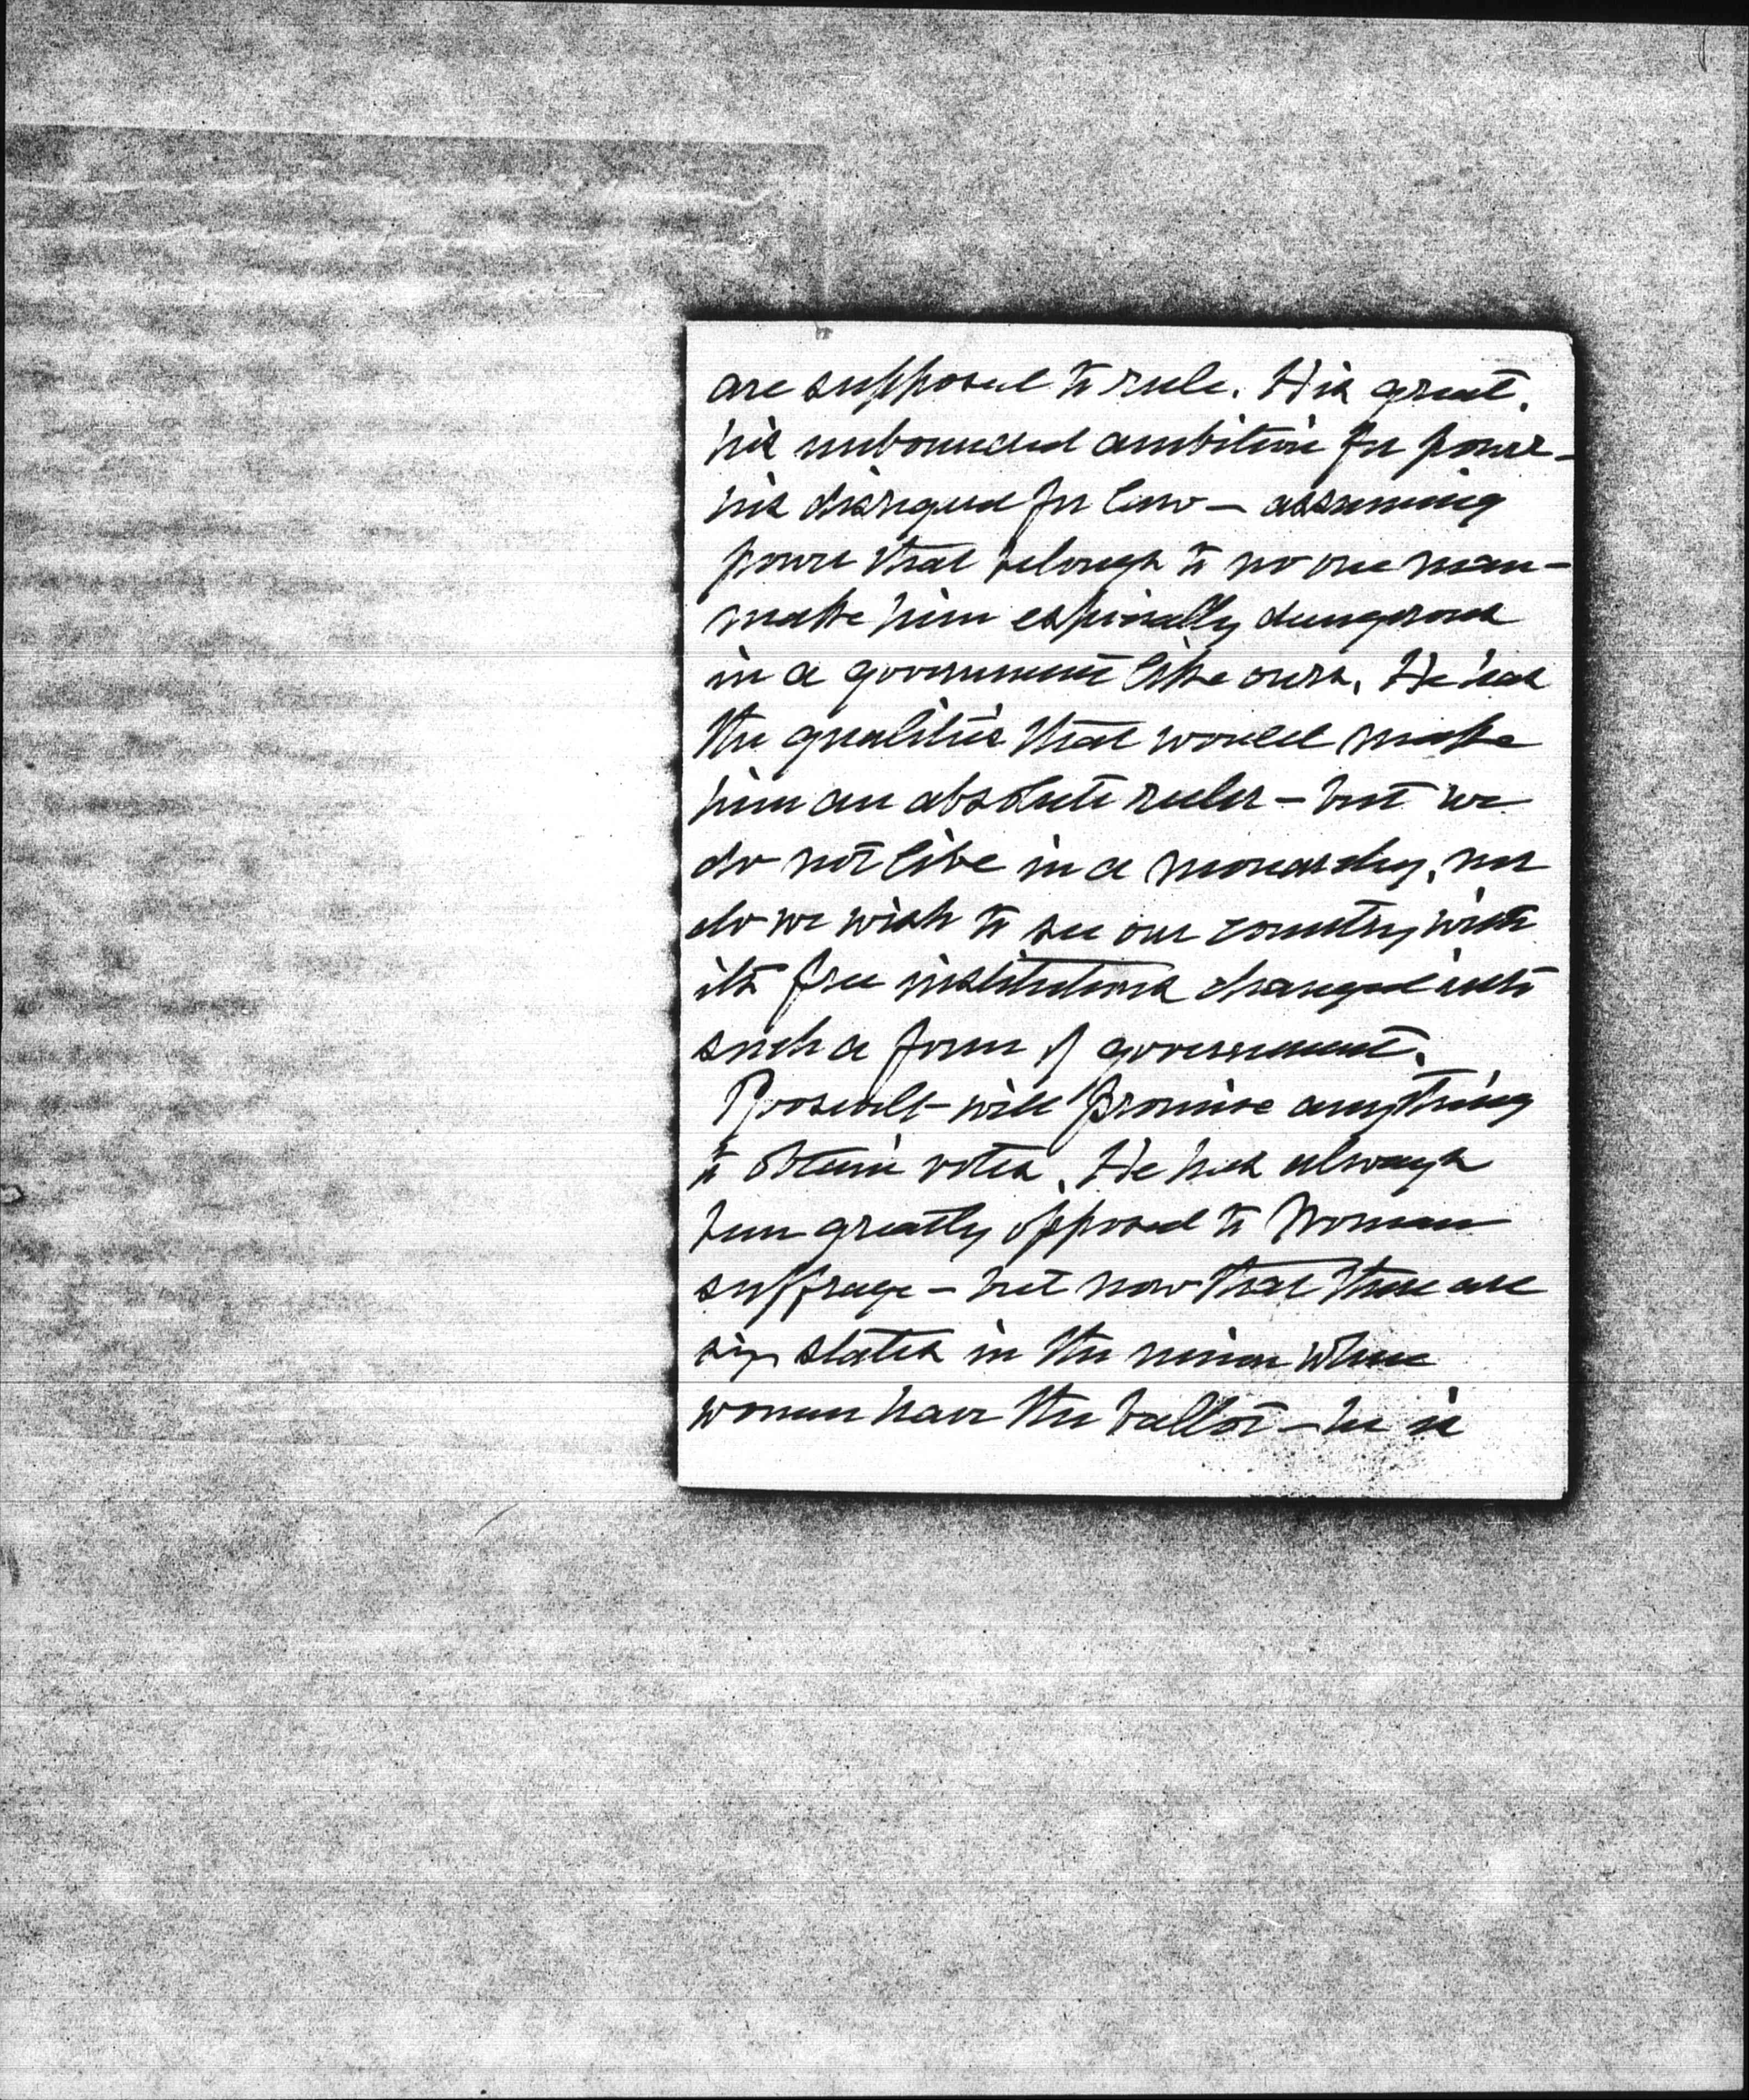 are supposed to rule. His great,
his unbounded ambition for power –
his disregard for law – assuming
power that belongs to no one man –
make him especially dangerous
in a government like ours. He has
the qualities that would make
him an absolute ruler – but we
do not live in a monarchy, nor
do we wish to see our country with
its free institutions changed into
such a form of government.
Roosevelt – will promise anything
to obtain votes. He has always
been greatly opposed to Woman
suffrage – but now that there are
six states in the union where
women have the ballot – he is